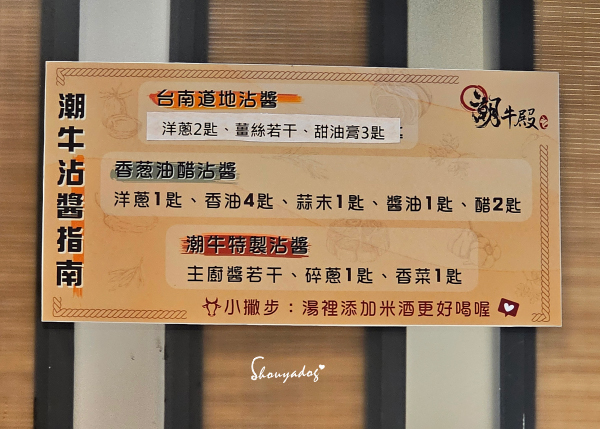 潮牛沾醬指南
潮牛殿
台南道地沾醬
洋蔥2匙、薑絲若干、甜油膏3匙
香葱油醋沾醬
洋蔥1匙、香油4匙、蒜末1匙、醬油1匙、醋2匙
潮牛特製沾醬
主廚醬若干、碎蔥1匙、香菜1匙
小撇步：湯裡添加米酒更好喝喔
Shouyadog